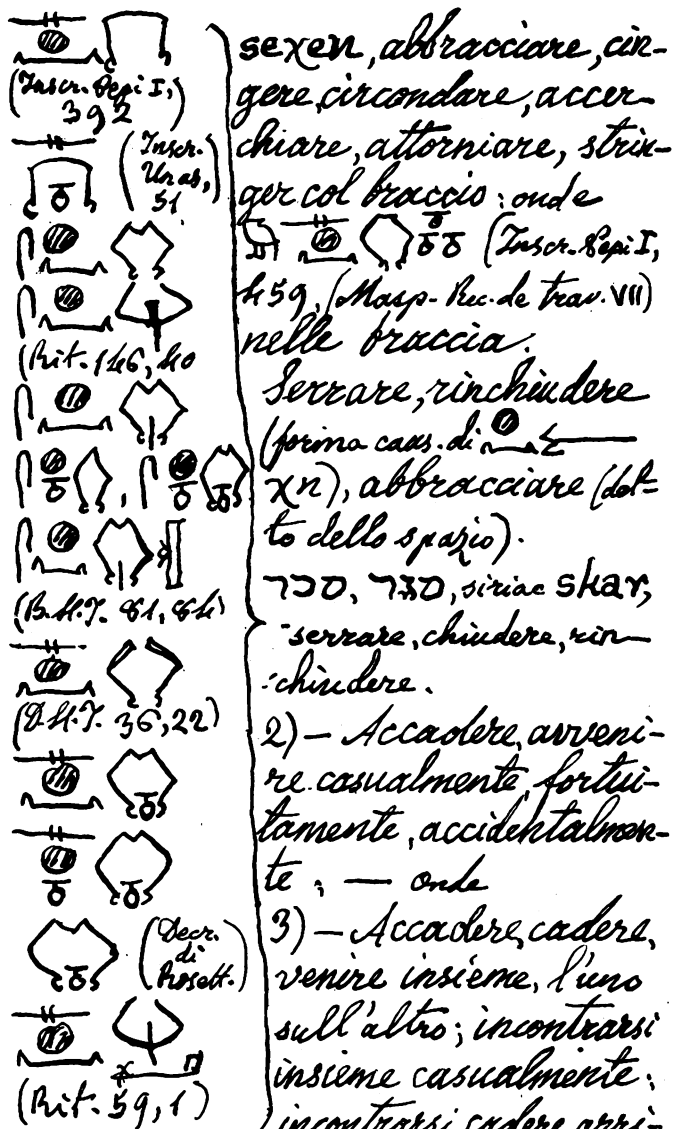 (Inscr. Pepi I,
392)
(Inscr.
Unas,
51)
(Rit. 146, 40
(D.H.J. 36, 22)
(Decr.
di
Rosett.)
(Rit. 59, 1)
seχen, abbracciare, cin-
gere, circondare, accer-
chiare, attorniare, strin-
ger col braccio: onde
(Inscr. Pepi I,
459, (Masp. Rec. de trav. VII)
nelle braccia.
Serrare, rinchiudere
(forma caus. di
χn), abbracciare (det-
to dello spazio).
סכר, סגר, siriac skar,
serrare, chiudere, rin-
chiudere.
2) — Accadere, avveni-
re casualmente, fortui-
tamente, accidentalmen-
te; — onde
3) — Accadere, cadere,
venire insieme, l'uno
sull'altro; incontrarsi
insieme casualmente;
incontrarsi, cadere